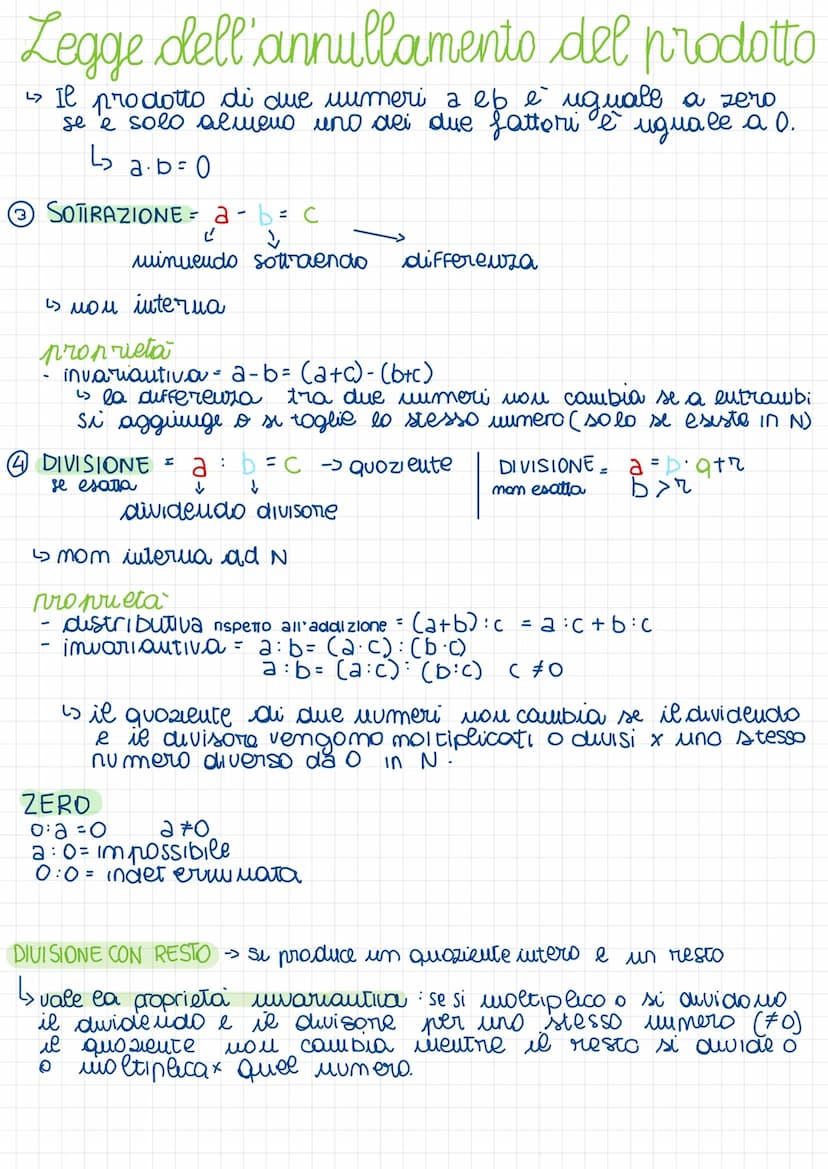 Legge dell'annullamento del prodotto
↳ Il prodotto di due numeri a e b è uguale a zero
se e solo almeno uno dei due fattori è uguale a 0.
↳ a·b=0
③ SOTTRAZIONE = a - b = c
minuendo sottraendo → differenza
↳ non interna
proprietà
- invariantiva = a-b = (a+c)-(b+c)
↳ la differenza tra due numeri non cambia se a entrambi
si aggiunge o si toglie lo stesso numero (solo se esiste in N)
④ DIVISIONE = a : b = c -> quoziente | DIVISIONE = a = b·q+r
se esatta non esatta b>r
dividendo divisore
↳ non interna ad N
proprietà
- distributiva rispetto all'addizione = (a+b):c = a:c + b:c
- invariantiva = a:b = (a·c):(b·c)
a:b = (a:c):(b:c) c ≠0
↳ il quoziente di due numeri non cambia se il dividendo
e il divisore vengono moltiplicati o divisi x uno stesso
numero diverso da 0 in N.
ZERO
0:a =0 a ≠0
a:0= impossibile
0:0= indeterminata
DIVISIONE CON RESTO -> si produce un quoziente intero e un resto
↳ vale la proprietà invariantiva : se si moltiplica o si dividono
il dividendo e il divisore per uno stesso numero (≠0)
il quoziente non cambia mentre il resto si divide o
o moltiplica x quel numero.